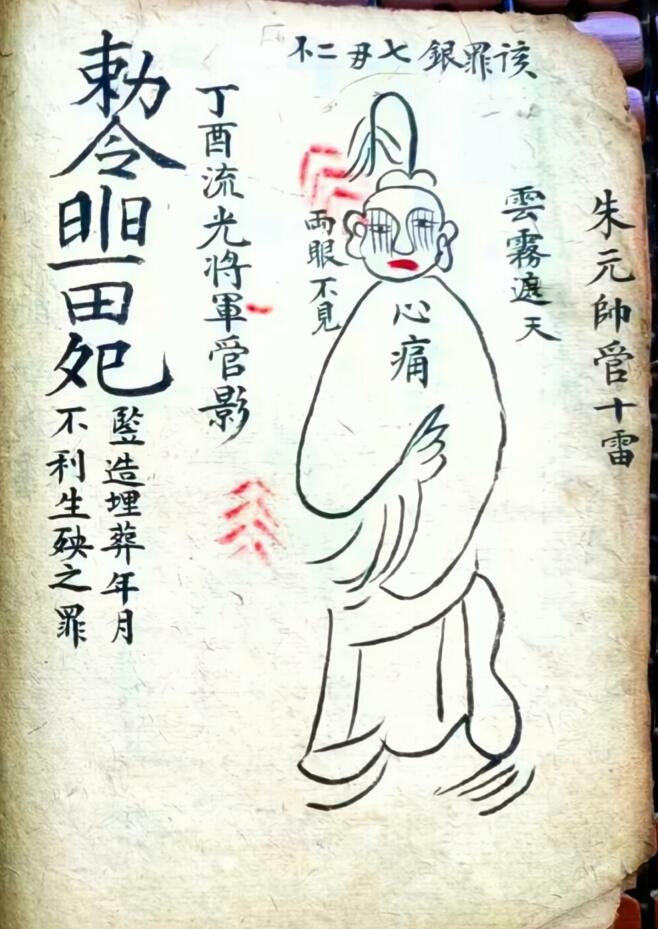 該罪銀七毋二不
朱元帥管十雷
雲霧遮天
心痛
兩眼不見
丁酉流光將軍管影
勅令
田
竪造埋葬年月
不利生殃之罪